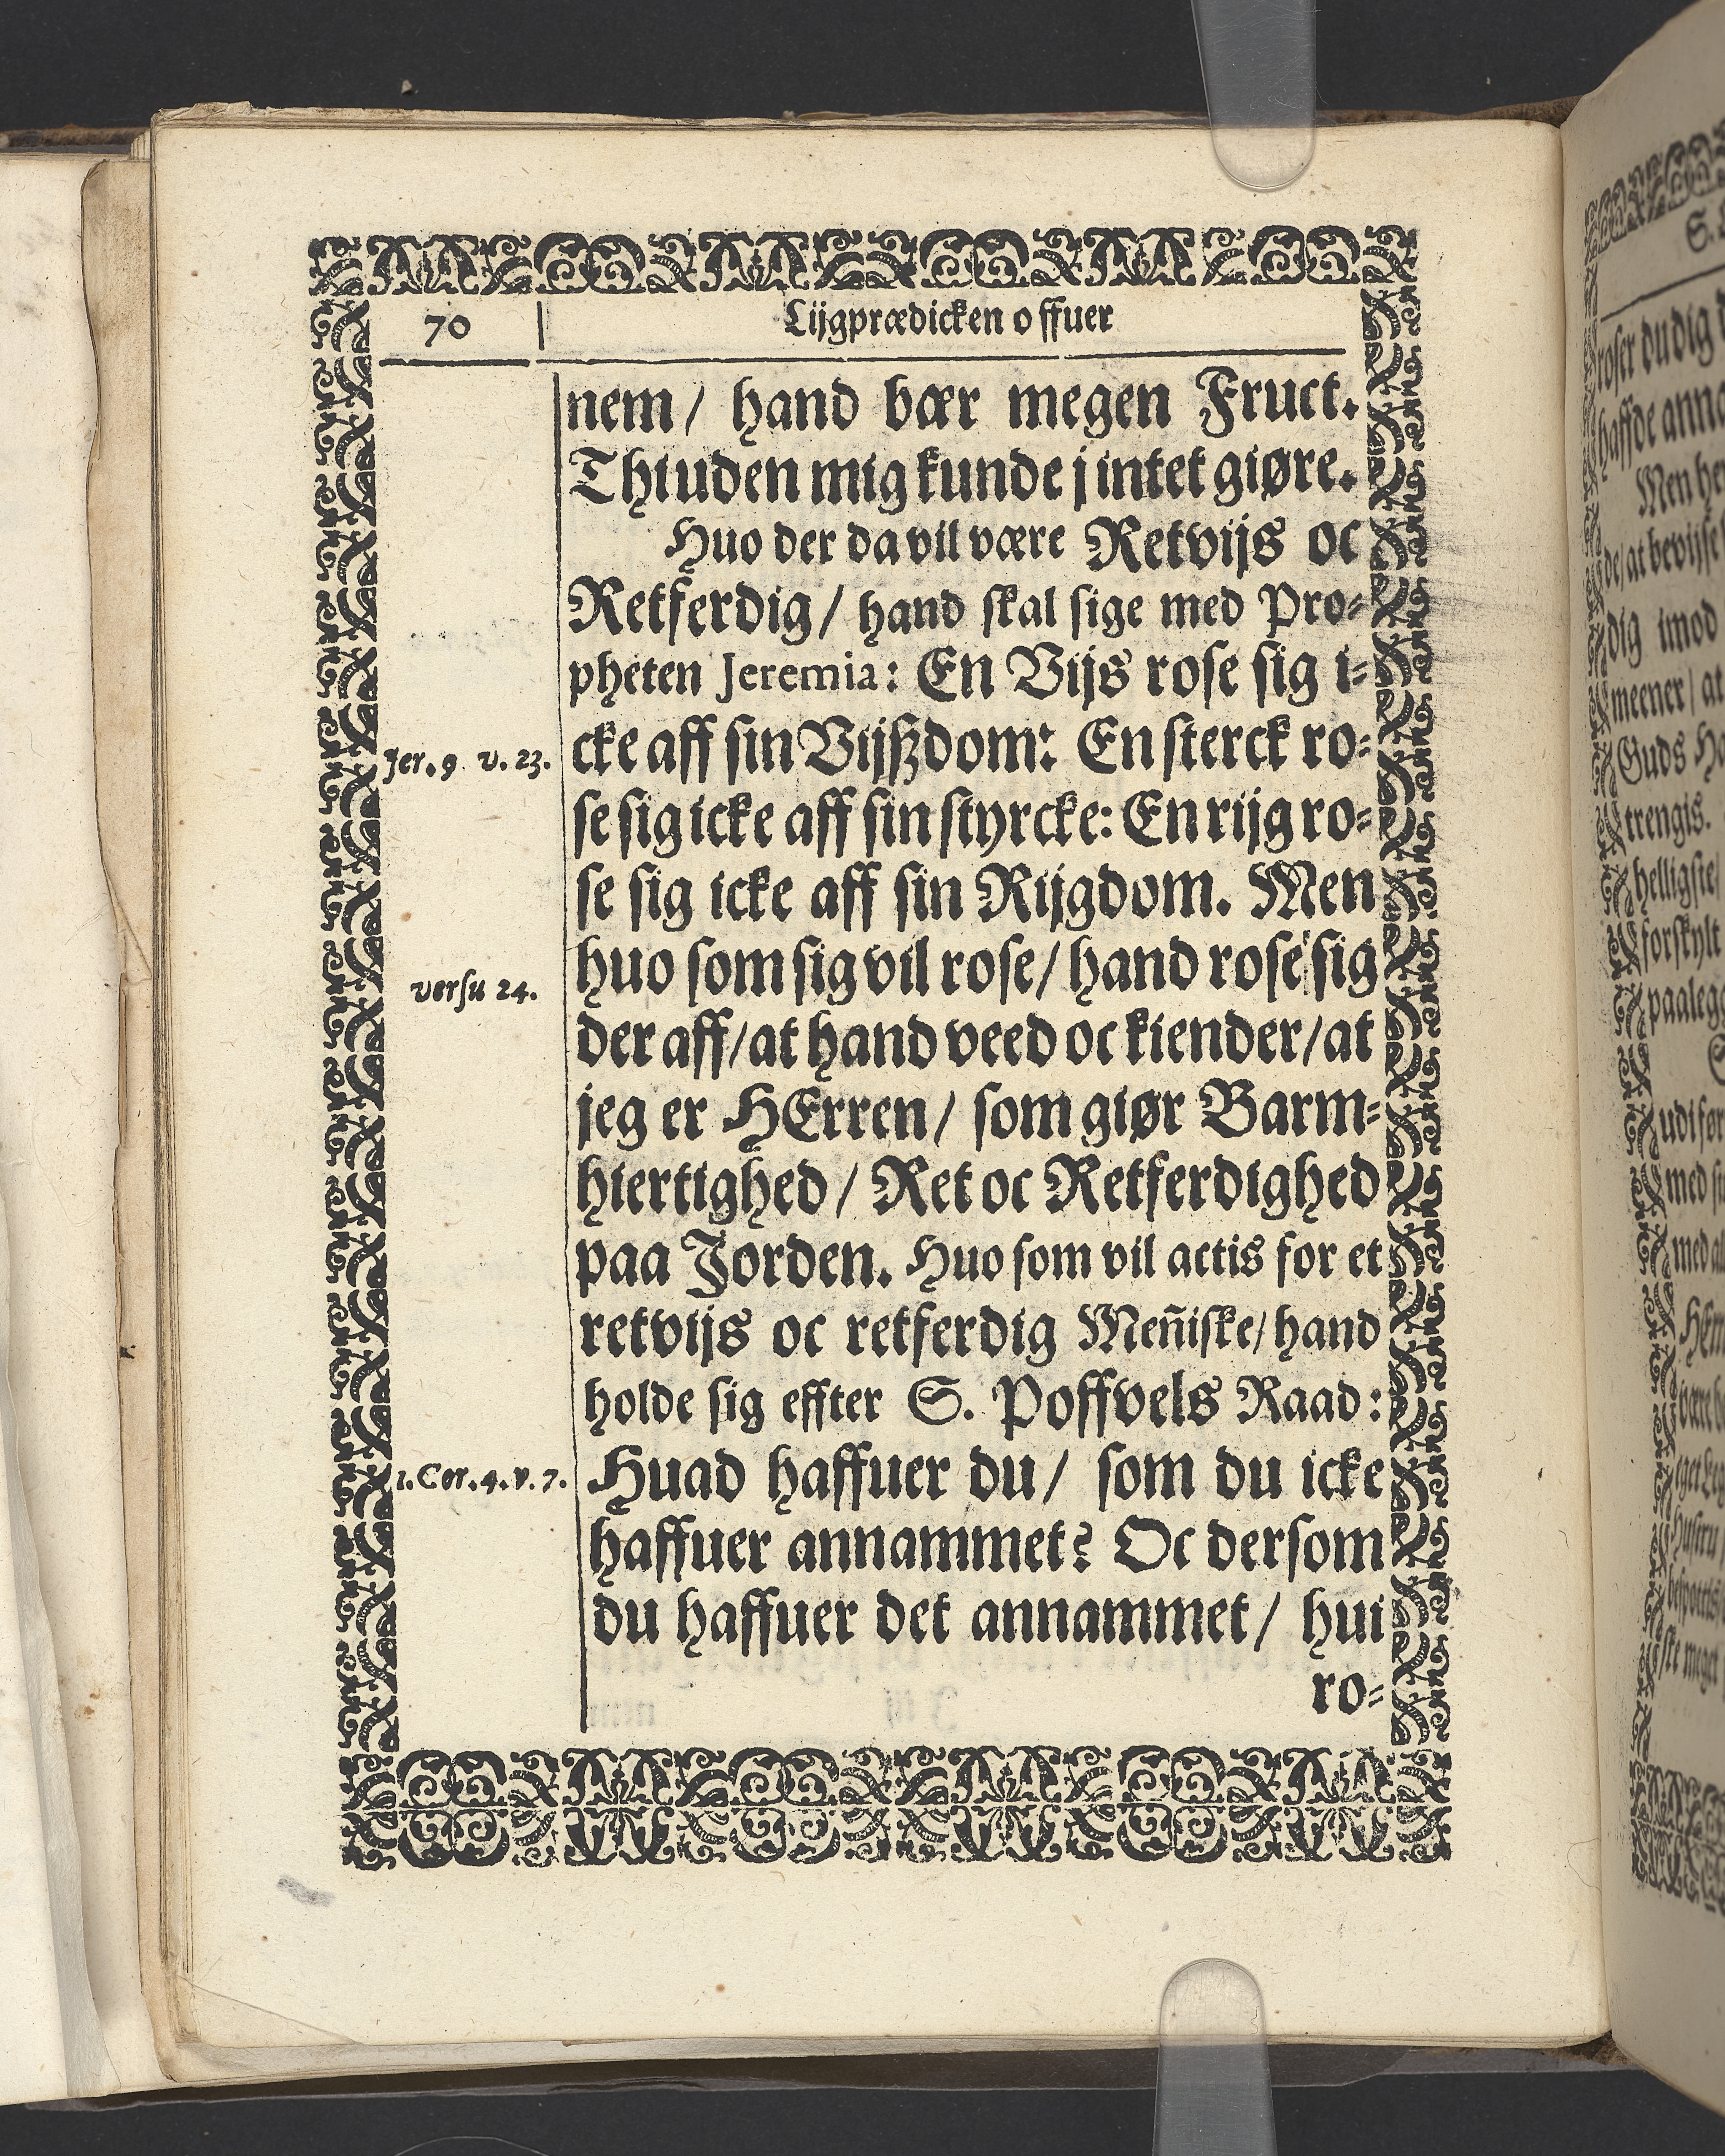 70 Lijgprædicken offuer
nem/ hand bær megen Fruct.
Thi uden mig kunde j intet giøre.
Huo der da vil være Retvijs oc
Retferdig/ hand skal sige med Pro-
pheten Jeremia: En Vijs rose sig i-
Jer. 9 v. 23.
cke aff sin Vijßdom: En sterck ro-
se sig icke aff sin styrcke: En rijg ro-
se sig icke aff sin Rijgdom. Men
huo som sig vil rose/ hand rose sig
versu 24.
der aff/ at hand veed oc kiender/ at
jeg er HErren/ som giør Barm-
hiertighed/ Ret oc Retferdighed
paa Jorden. Huo som vil actis for et
retvijs oc retferdig Meñiske/ hand
holde sig effter S. Poffvels Raad:
1. Cor. 4. v. 7.
Huad haffuer du/ som du icke
haffuer annammet? Oc dersom
du haffuer det annammet/ hui
ro-
S.
roser du dig
haffde anna
Men her
de/ at bevijse
dig imod
meener/ at
Guds
trengis.
helligste/
forskylt
paaleg
med